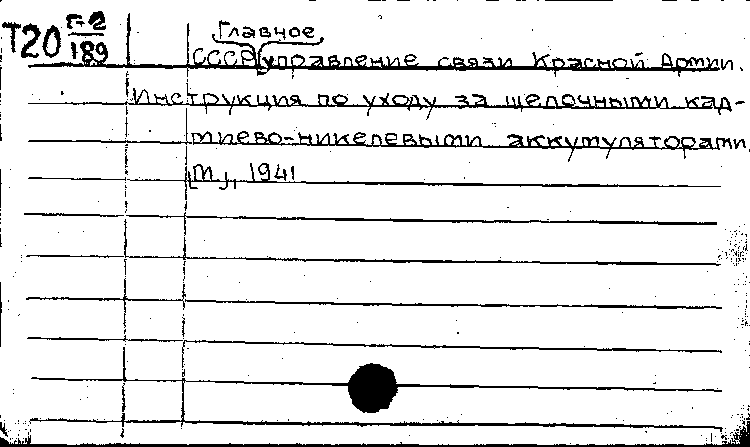 Т20 Г-2
189
Главное
СССР управление связи Красной Армии.
Инструкция по уходу за щелочными кад-
миево-никелевыми аккумуляторами
[М.], 1941